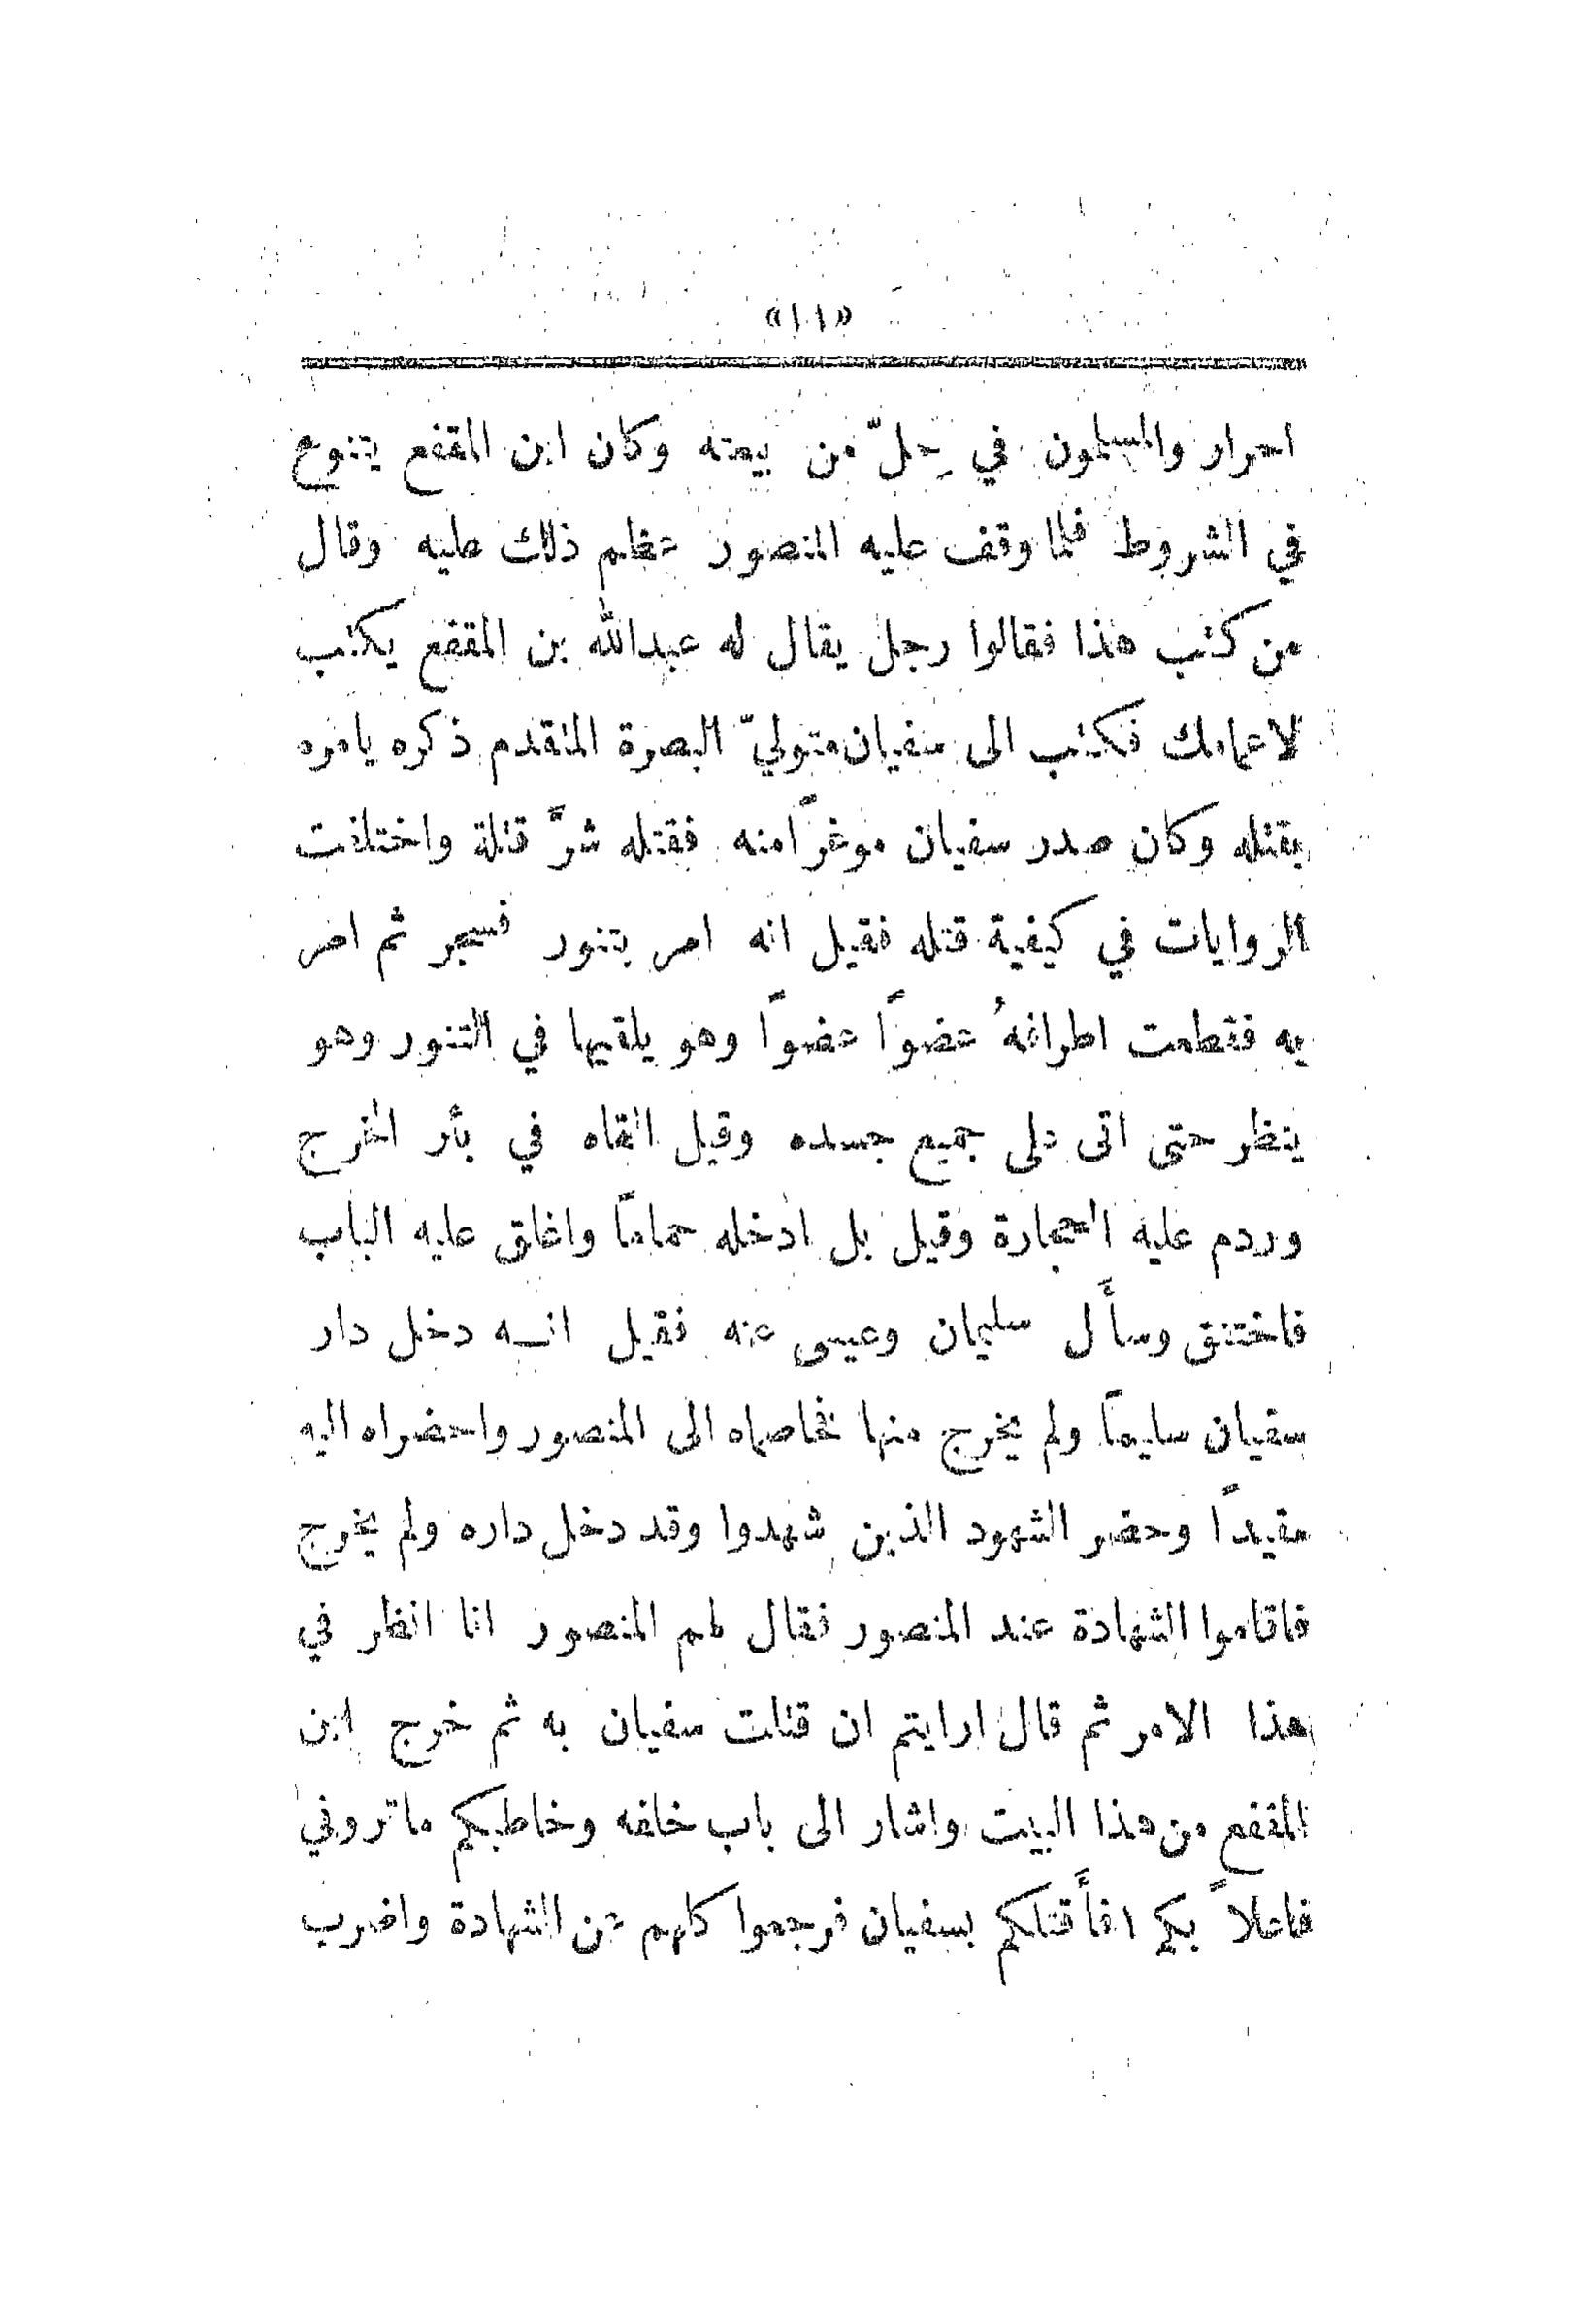 «١١»
احرار والمسلمون في حِلّ من بيعته وكان ابن المقفع يتنوع
في الشروط فلما وقف عليه المنصور عظم ذلك عليه وقال
من كتب هذا فقالوا رجل يقال له عبدالله بن المقفع يكتب
لاعمامك فكتب الى سفيان متوليّ البصرة المتقدم ذكره يامره
بقتله وكان صدر سفيان موغرًا منه فقتله شرَّ قتلة واختلفت
الروايات في كيفية قتله فقيل انه امر بتنور فسجر ثم امر
به فقطعت اطرافهُ عضوًا عضوًا وهو يلقيها في التنور وهو
ينظر حتى اتى على جميع جسده وقيل القاه في بأر المخرج
وردم عليه الحجارة وقيل بل ادخله حمامًا واغلق عليه الباب
فاختنق وسأَل سليمان وعيسى عنه فقيل انــه دخل دار
سفيان سليمًا ولم يخرج منها فخاصماه الى المنصور واحضراه اليه
مقيدًا وحضر الشهود الذين شهدوا وقد دخل داره ولم يخرج
فاقاموا الشهادة عند المنصور فقال لهم المنصور انا انظر في
هذا الامر ثم قال ارايتم ان قتلت سفيان به ثم خرج ابن
المقفع من هذا البيت واشار الى باب خلفه وخاطبكم ماتروني
فاعلاً بكم افأَقتلكم بسفيان فرجعوا كلهم عن الشهادة واضرب